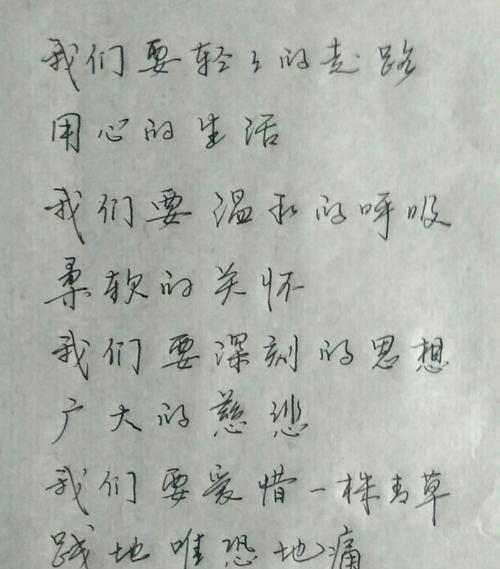 我们要轻轻的走路
用心的生活
我们要温和的呼吸
柔软的关怀
我们要深刻的思想
广大的慈悲
我们要爱惜一株青草
践地唯恐地痛